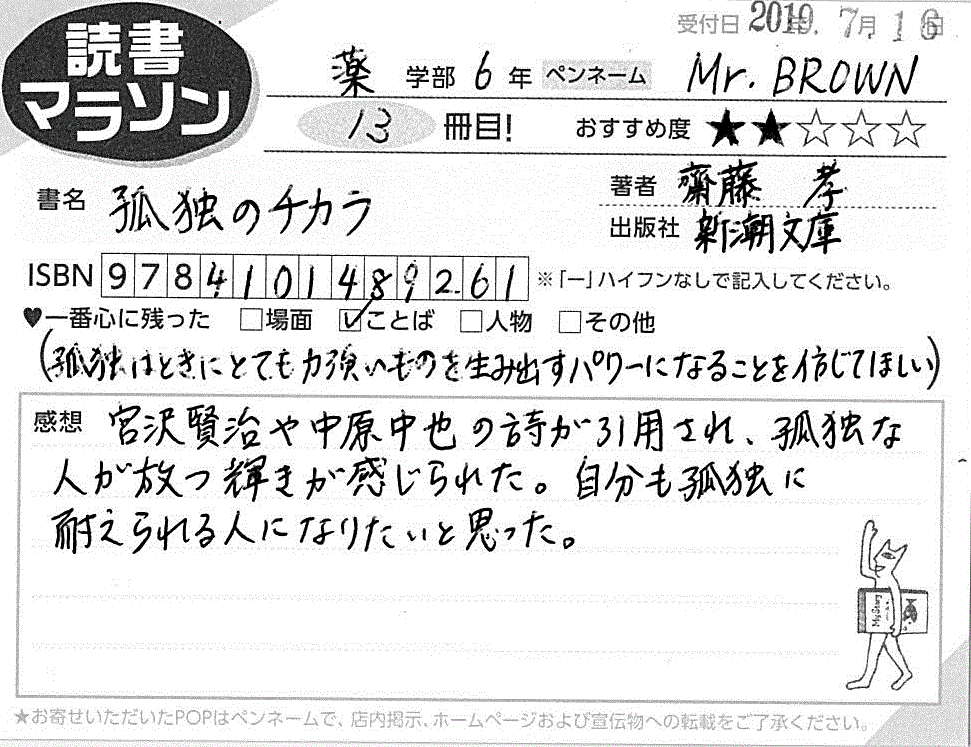 読書
マラソン
受付日 2019年 7月 16日
薬 学部 6 年 ペンネーム Mr. BROWN
13 冊目! おすすめ度 ★★☆☆☆
書名 孤独のチカラ
著者 齋藤 孝
出版社 新潮文庫
ISBN 9784101489261 ※「ー」ハイフンなしで記入してください。
♥一番心に残った □場面 ☑ことば □人物 □その他
(孤独はときにとても力強いものを生み出すパワーになることを信じてほしい)
感想 宮沢賢治や中原中也の詩が引用され、孤独な
人が放つ輝きが感じられた。自分も孤独に
耐えられる人になりたいと思った。
★お寄せいただいたPOPはペンネームで、店内掲示、ホームページおよび宣伝物への転載をご了承ください。